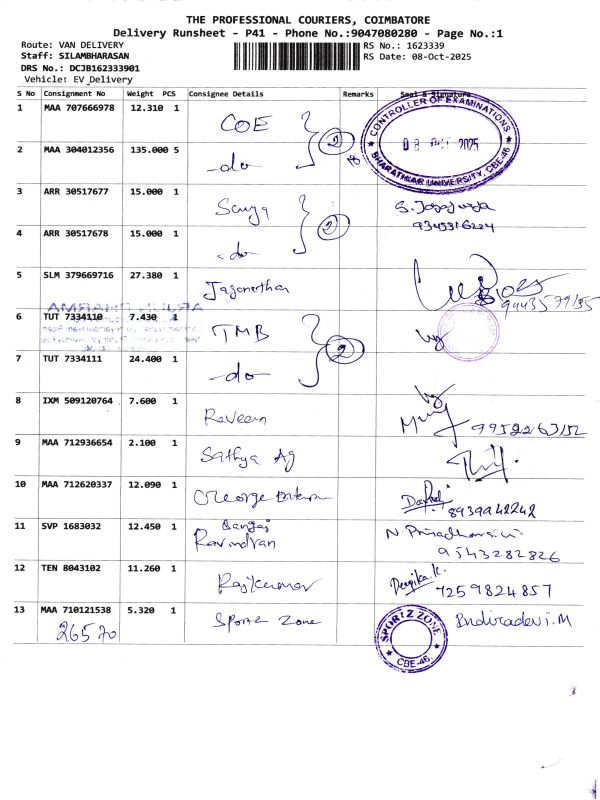 THE PROFESSIONAL COURIERS, COIMBATORE
Delivery Runsheet - P41 - Phone No.:9047080280 - Page No.:1
Route: VAN DELIVERY
RS No.: 1623339
Staff: SILAMBHARASAN
RS Date: 08-Oct-2025
DRS No.: DCJB162333901
Vehicle: EV_Delivery
S No Consignment No Weight PCS Consignee Details Remarks Seal & Signature
1 MAA 707666978 12.310 1 COE
CONTROLLER OF EXAMINATIONS
2025
BHARATHIAR UNIVERSITY, CBE-46
2 MAA 304012356 135.000 5 -do- 2
3 ARR 30517677 15.000 1
4 ARR 30517678 15.000 1 -do- 2
5 SLM 379669716 27.380 1
6 TUT 7334110 7.430 1 TMB
7 TUT 7334111 24.400 1 -do- 2
8 IXM 509120764 7.600 1 Raveen
9 MAA 712936654 2.100 1 Sathya Ag
10 MAA 712620337 12.090 1 George
8939442242
11 SVP 1683032 12.450 1 Ravindran
9543282826
12 TEN 8043102 11.260 1 Rajkumar Deepika.K.
7259824857
13 MAA 710121538 5.320 1 Sportz Zone Indiradevi.M
SPORTZ ZONE
CBE-46.
26570